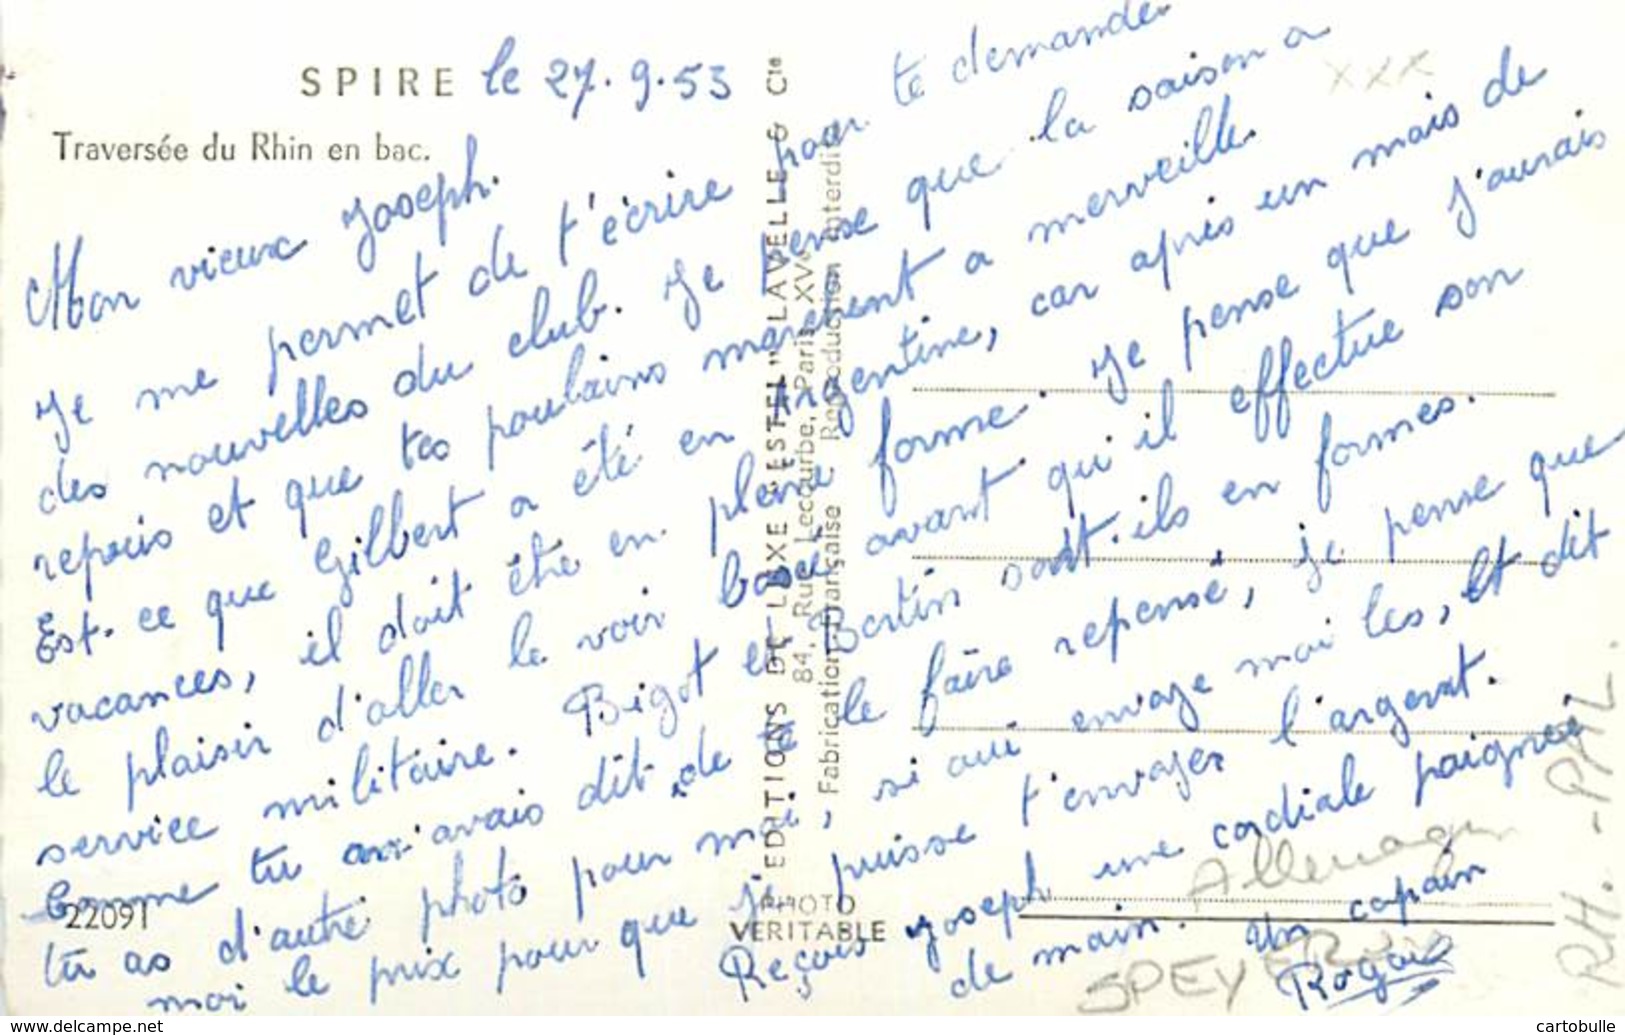 SPIRE le 27.9.53
Traversée du Rhin en bac.
Mon vieux Joseph.
Je me permet de t'écrire pour te demander
des nouvelles du club. Je pense que la saison a
repris et que tes poulains marchent a merveille.
Est-ce que Gilbert a été en Argentine, car après un mois de
vacances, il doit être en pleine forme. Je pense que j'aurais
le plaisir d'aller le voir boxé avant qu'il effectue son
service militaire. Bigot et Bertin sont-ils en formes.
Comme tu m'avais dit de te le faire reponse, je pense que
tu as d'autre photo pour moi, si oui envoye moi les, et dit
moi le prix pour que je puisse t'envoyer l'argent.
Reçois Joseph une cordiale poignée
de main. Un copain
Roger
22091
EDITIONS DE LUXE "ESTEL" LAVELLE & Cie
84, Rue Lecourbe, Paris XVe
Fabrication Française Reproduction interdite
PHOTO
VERITABLE
xxx
Allemagne
SPEYER
RH.-PAL.
www.delcampe.net
cartobulle